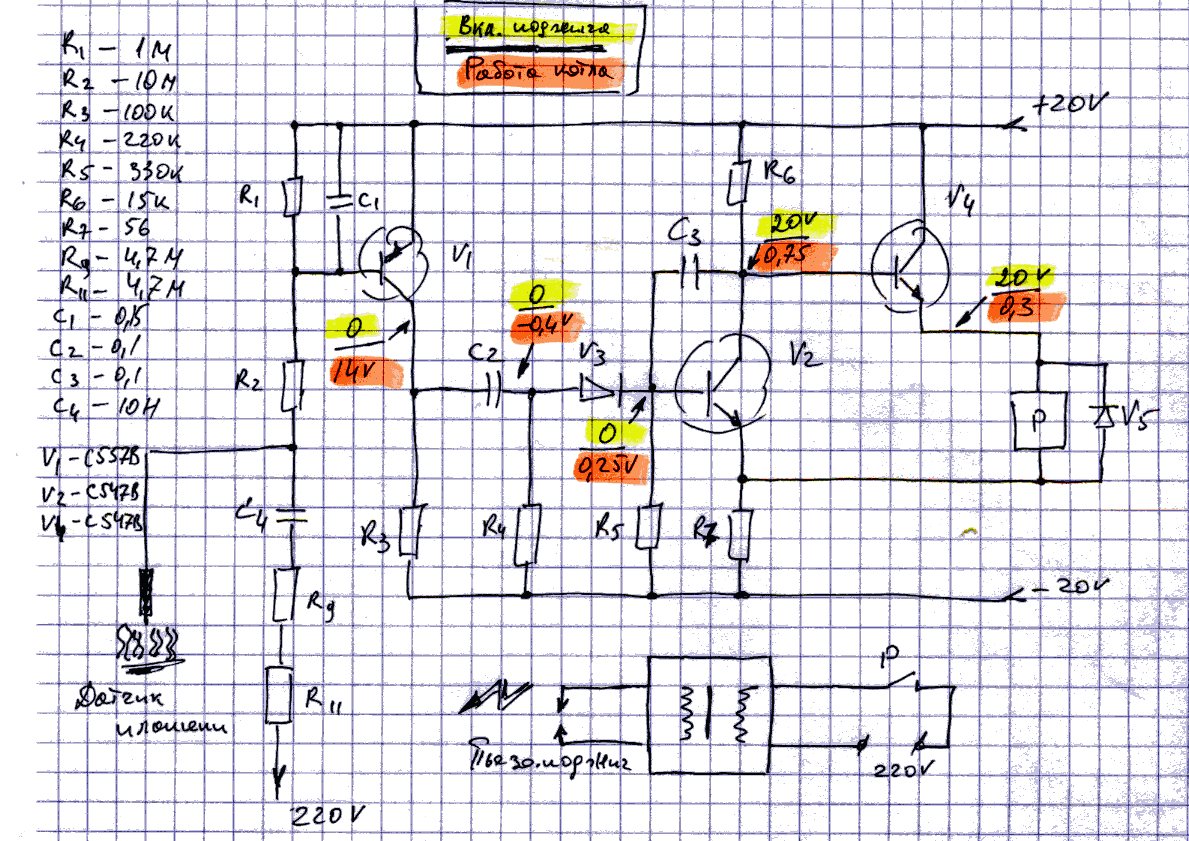 Вкл. поджига
Работа котла
R1 – 1М
R2 – 10М
R3 – 100к
R4 – 220к
R5 – 330к
R6 – 15к
R7 – 56
R9 – 4,7М
R11 – 4,7М
C1 – 0,15
C2 – 0,1
C3 – 0,1
C4 – 10Н
V1 – C557B
V2 – C547B
V4 – C547B
+20V
R1
C1
V1
R6
V4
C3
20V
0,75
20V
0,3
0
14V
0
-0,4V
R2
C2
V3
V2
0
0,25V
P
V5
C4
R3
R4
R5
R7
-20V
R9
Датчик
пламени
R11
P
Пьезоподжиг
220V
220V